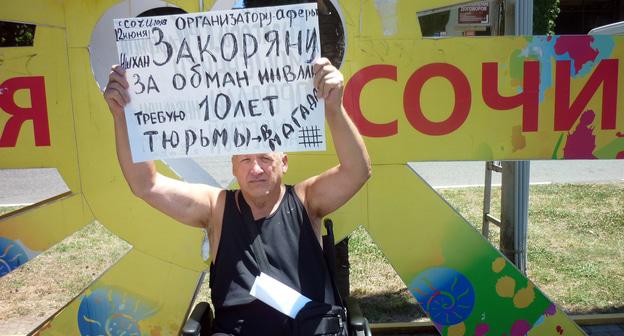 г СОЧИ
12 ИЮНЯ
ОРГАНИЗАТОРУ-АФЕРЫ
ЗАКОРЯНИ
ЗА ОБМАН ИНВАЛ
ТРЕБУЮ 10 ЛЕТ
ТЮРЬМЫ-В МАГАД
Я
СОЧИ